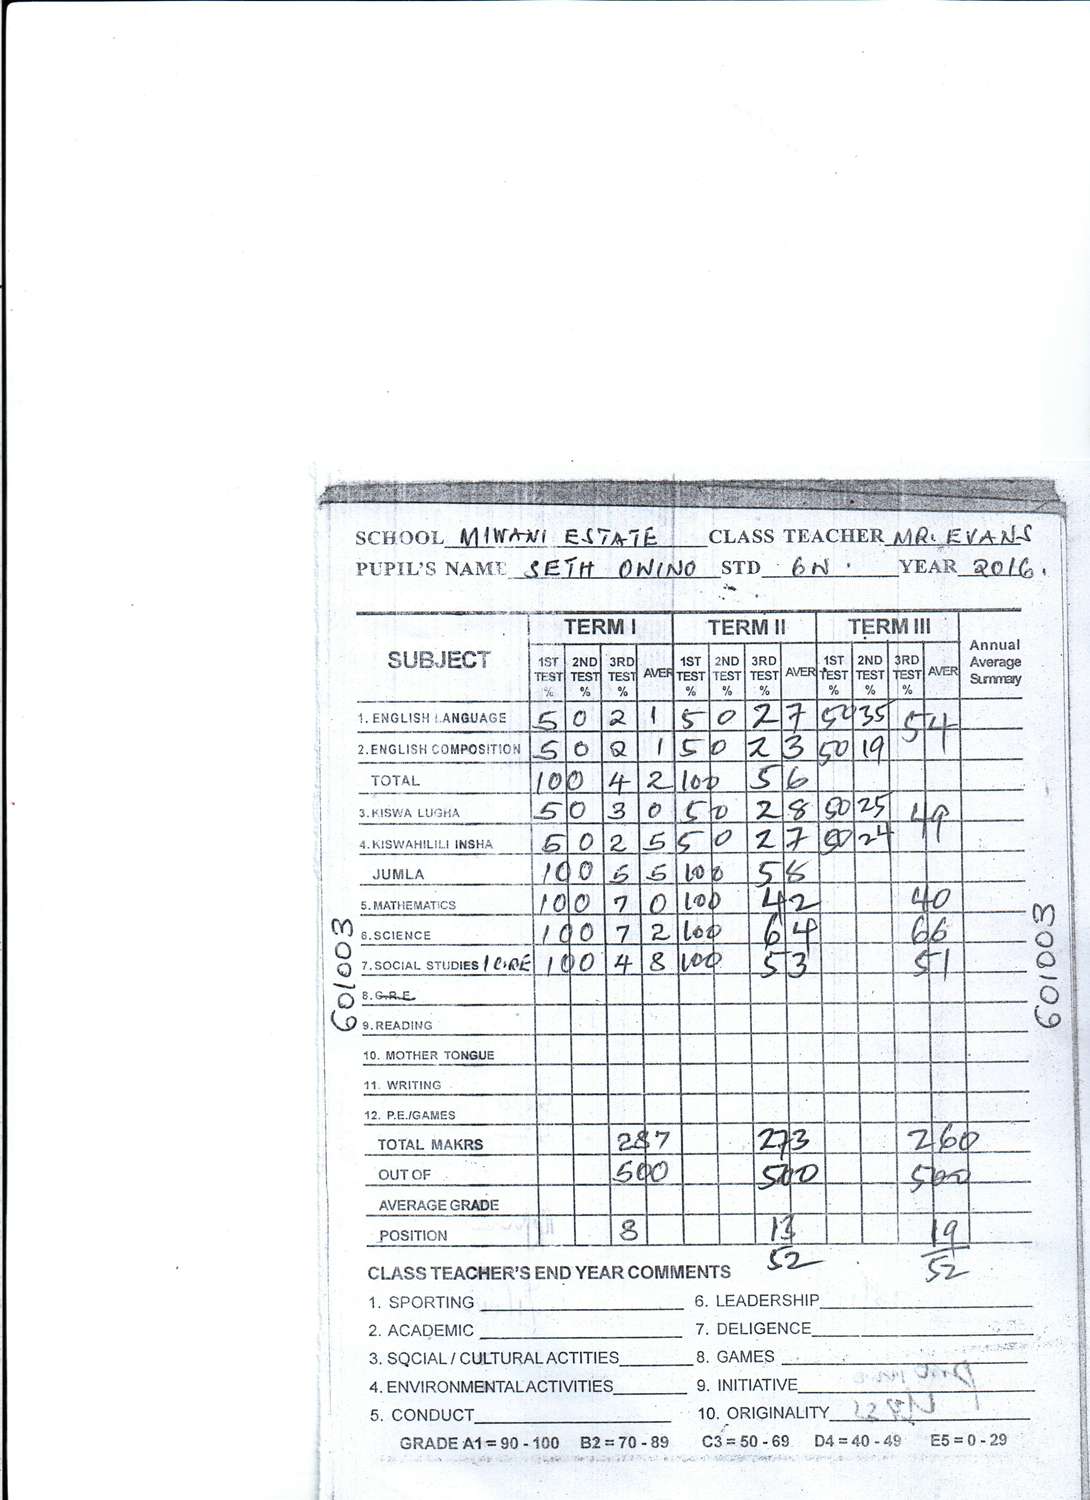 SCHOOL MIWANI ESTATE CLASS TEACHER MR. EVANS
PUPIL'S NAME SETH OWINO STD 6N. YEAR 2016.
SUBJECT TERM I TERM II TERM III Annual Average Summary
1ST TEST % 2ND TEST % 3RD TEST % AVER 1ST TEST % 2ND TEST % 3RD TEST % AVER 1ST TEST % 2ND TEST % 3RD TEST % AVER
1. ENGLISH LANGUAGE 50 21 50 27 50 35 54
2. ENGLISH COMPOSITION 50 21 50 23 50 19
TOTAL 100 42 100 56
3. KISWA LUGHA 50 30 50 28 50 25 49
4. KISWAHILILI INSHA 50 25 50 27 50 24
JUMLA 100 55 100 58
5. MATHEMATICS 100 70 100 42 40
6. SCIENCE 100 72 100 64 66
7. SOCIAL STUDIES / C.R.E 100 48 100 53 51
8. C.R.E.
9. READING
10. MOTHER TONGUE
11. WRITING
12. P.E./GAMES
TOTAL MAKRS 287 273 260
OUT OF 500 500 500
AVERAGE GRADE
POSITION 8 13 19
52 52
601003
601003
CLASS TEACHER'S END YEAR COMMENTS
1. SPORTING 6. LEADERSHIP
2. ACADEMIC 7. DELIGENCE
3. SOCIAL / CULTURAL ACTITIES 8. GAMES
4. ENVIRONMENTAL ACTIVITIES 9. INITIATIVE
5. CONDUCT 10. ORIGINALITY
GRADE A1 = 90 - 100 B2 = 70 - 89 C3 = 50 - 69 D4 = 40 - 49 E5 = 0 - 29